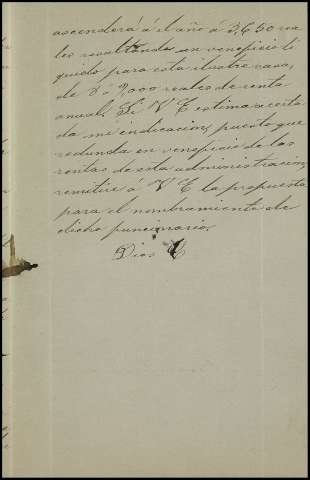 ascenderá á el año á 3,650 rea
les resultando un veneficio lí
quido para esta ilustre casa,
de 8 á 9,000 reales de renta
anual. Si V E estima acerta
da mi indicacion, puesto que
redunda en veneficio de las
rentas de esta administracion,
remitiré á V E la propuesta
para el nombramiento de
dicho funcionario.
Dios